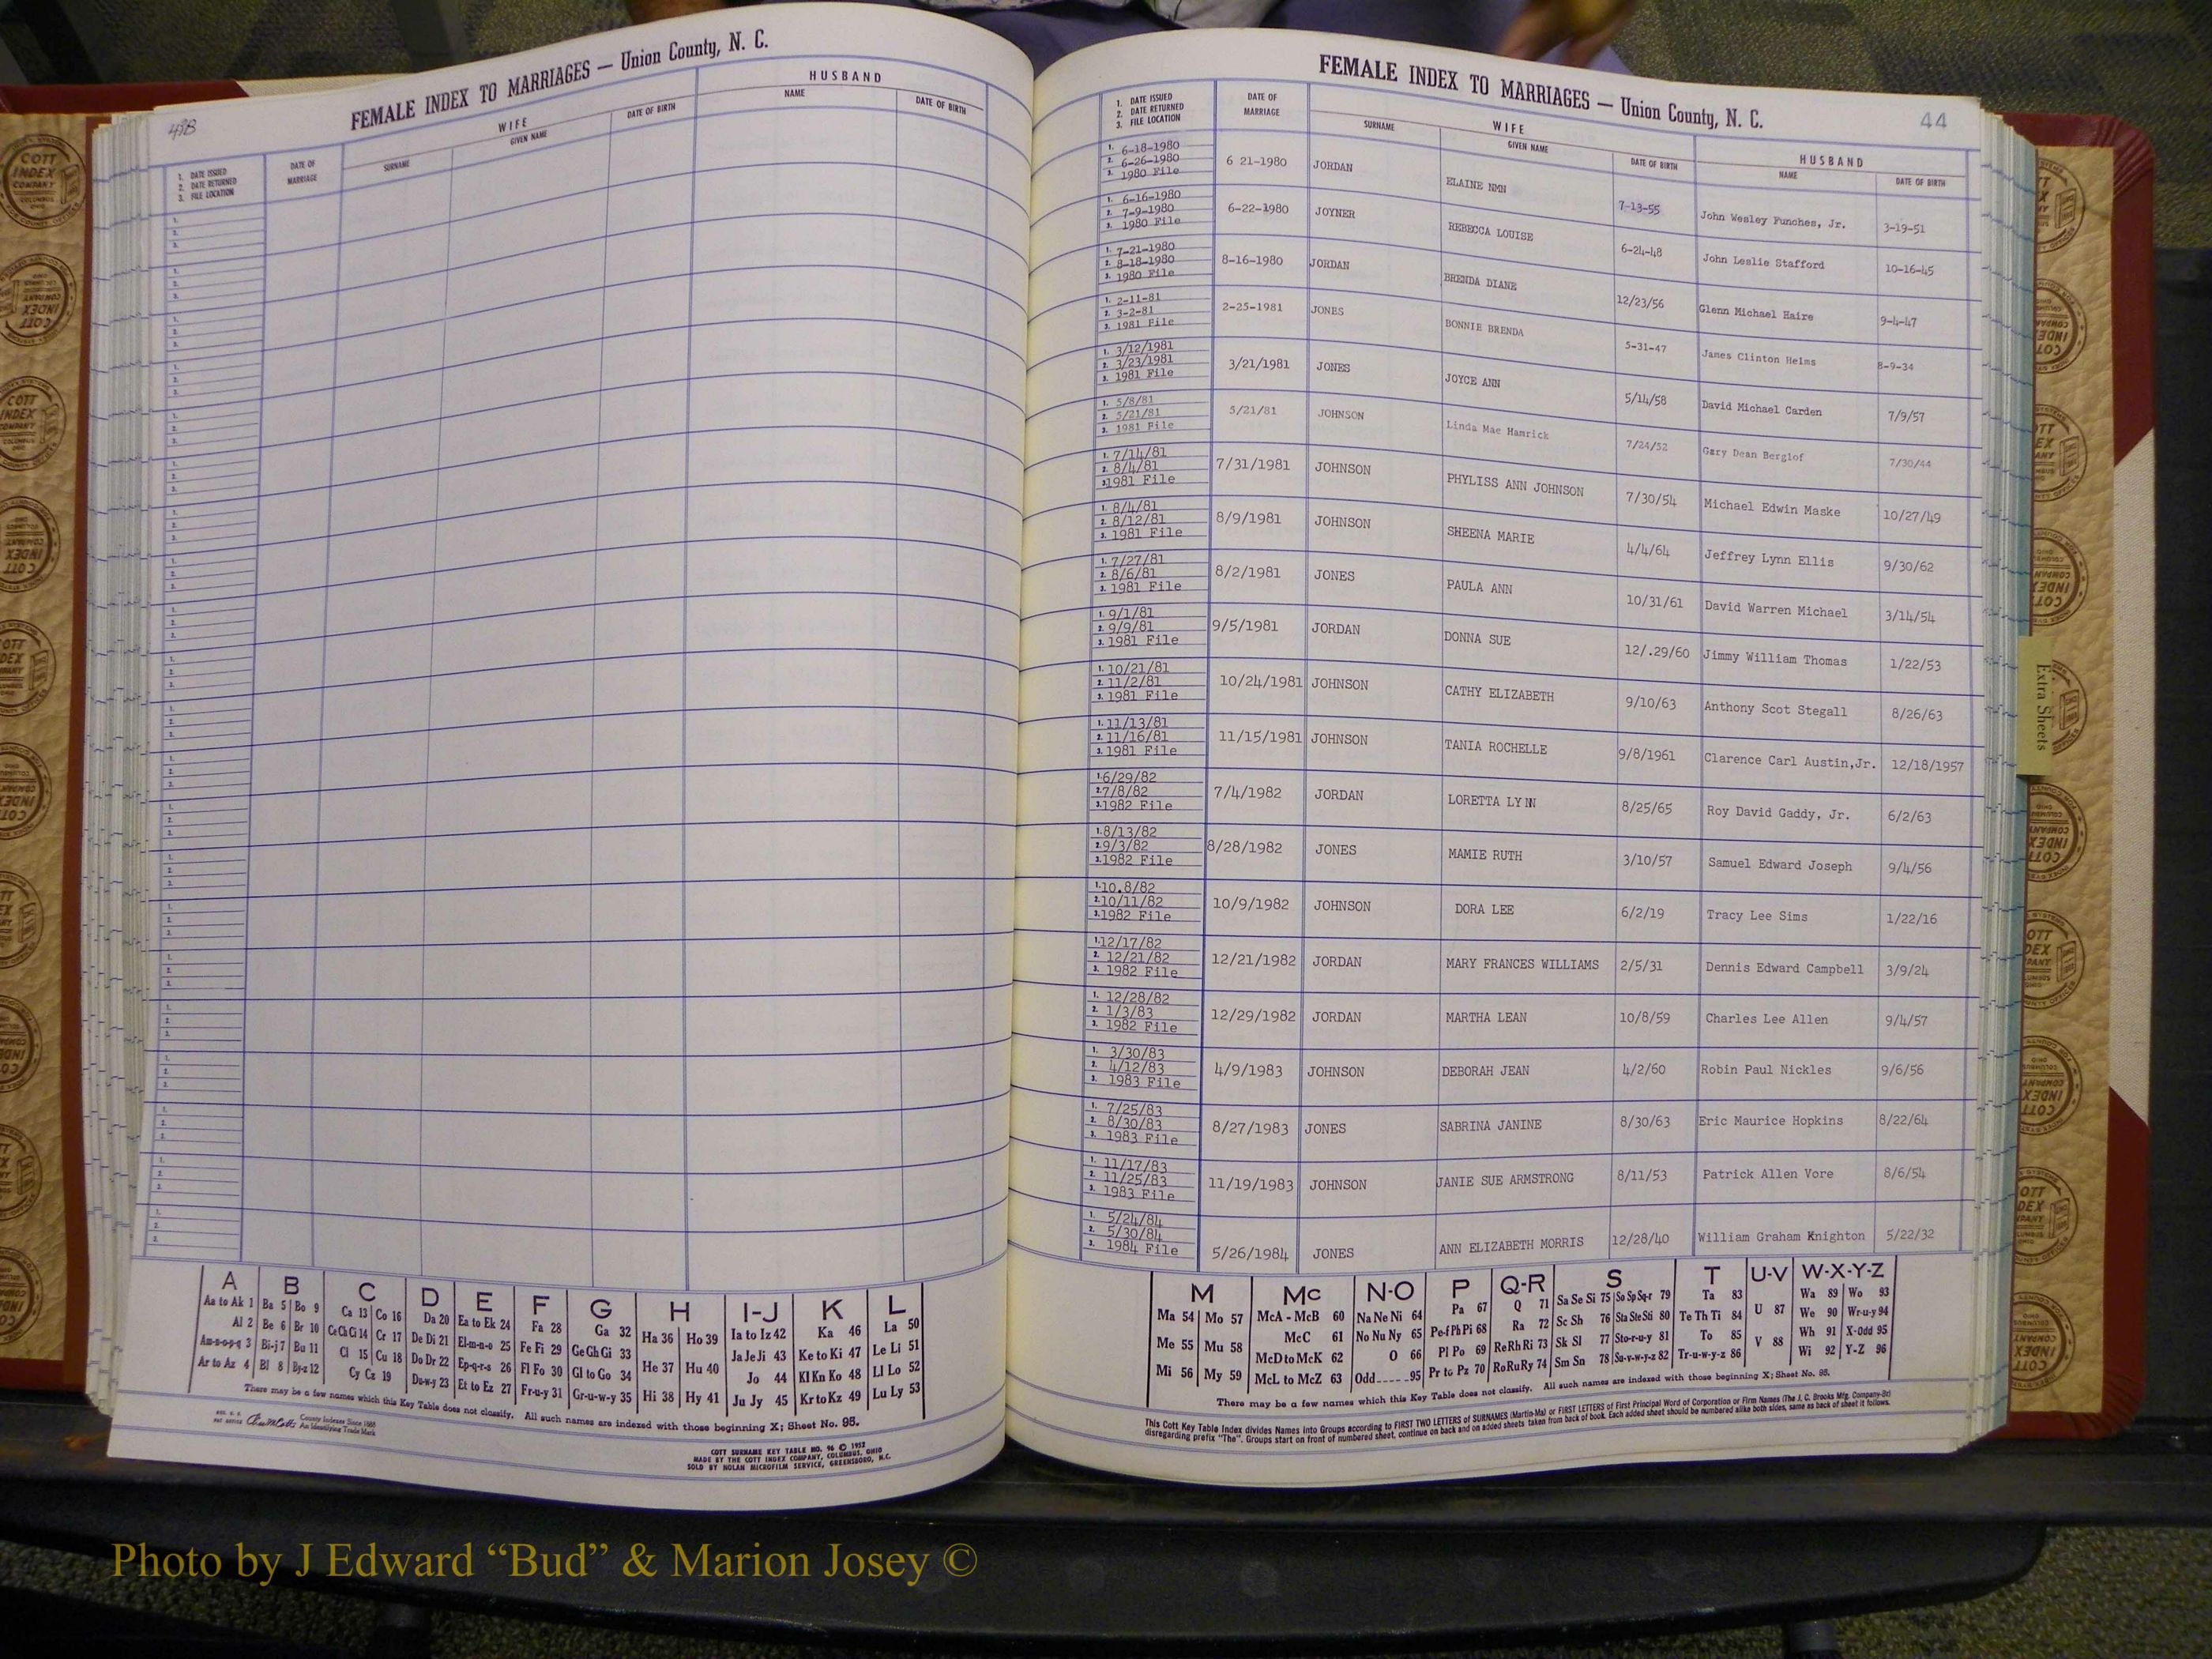 43B
FEMALE INDEX TO MARRIAGES — Union County, N. C.
WIFE
HUSBAND
1. DATE ISSUED
2. DATE RETURNED
3. FILE LOCATION
DATE OF MARRIAGE
SURNAME
GIVEN NAME
DATE OF BIRTH
NAME
DATE OF BIRTH
A B C D E F G H I-J K L
Aa to Ak 1 Ba 5 Bo 9 Ca 13 Co 16 Da 20 Ea to Ek 24 Fa 28 Ga 32 Ha 36 Ho 39 Ia to Iz 42 Ka 46 La 50
Al 2 Be 6 Br 10 Ce Ch Ci 14 Cr 17 De Di 21 El-m-n-o 25 Fe Fi 29 Ge Gh Gi 33 Ja Je Ji 43 Ke to Ki 47 Le Li 51
Am-n-o-p-q 3 Bi-j 7 Bu 11 Cl 15 Cu 18 Do Dr 22 Ep-q-r-s 26 Fl Fo 30 Gl to Go 34 He 37 Hu 40 Jo 44 Kl Kn Ko 48 Ll Lo 52
Ar to Az 4 Bl 8 By-z 12 Cy Cz 19 Du-w-y 23 Et to Ez 27 Fr-u-y 31 Gr-u-w-y 35 Hi 38 Hy 41 Ju Jy 45 Kr to Kz 49 Lu Ly 53
There may be a few names which this Key Table does not classify. All such names are indexed with those beginning X; Sheet No. 95.
County Indexes Since 1888
An Identifying Trade Mark
COTT SURNAME KEY TABLE NO. 96 © 1952
MADE BY THE COTT INDEX COMPANY, COLUMBUS, OHIO
SOLD BY NOLAN MICROFILM SERVICE, GREENSBORO, N.C.
FEMALE INDEX TO MARRIAGES — Union County, N. C.
44
1. DATE ISSUED
2. DATE RETURNED
3. FILE LOCATION
DATE OF MARRIAGE
WIFE
SURNAME
GIVEN NAME
DATE OF BIRTH
HUSBAND
NAME
DATE OF BIRTH
1. 6-18-1980
2. 6-26-1980
3. 1980 File
6 21-1980 JORDAN ELAINE NMN 7-13-55 John Wesley Funches, Jr. 3-19-51
1. 6-16-1980
2. 7-9-1980
3. 1980 File
6-22-1980 JOYNER REBECCA LOUISE 6-24-48 John Leslie Stafford 10-16-45
1. 7-21-1980
2. 8-18-1980
3. 1980 File
8-16-1980 JORDAN BRENDA DIANE 12/23/56 Glenn Michael Haire 9-4-47
1. 2-11-81
2. 3-2-81
3. 1981 File
2-25-1981 JONES BONNIE BRENDA 5-31-47 James Clinton Helms 8-9-34
1. 3/12/1981
2. 3/23/1981
3. 1981 File
3/21/1981 JONES JOYCE ANN 5/14/58 David Michael Carden 7/9/57
1. 5/8/81
2. 5/21/81
3. 1981 File
5/21/81 JOHNSON Linda Mae Hamrick 7/24/52 Gary Dean Berglof 7/30/44
1. 7/14/81
2. 8/4/81
3. 1981 File
7/31/1981 JOHNSON PHYLISS ANN JOHNSON 7/30/54 Michael Edwin Maske 10/27/49
1. 8/4/81
2. 8/12/81
3. 1981 File
8/9/1981 JOHNSON SHEENA MARIE 4/4/64 Jeffrey Lynn Ellis 9/30/62
1. 7/27/81
2. 8/6/81
3. 1981 File
8/2/1981 JONES PAULA ANN 10/31/61 David Warren Michael 3/14/54
1. 9/1/81
2. 9/9/81
3. 1981 File
9/5/1981 JORDAN DONNA SUE 12/.29/60 Jimmy William Thomas 1/22/53
1. 10/21/81
2. 11/2/81
3. 1981 File
10/24/1981 JOHNSON CATHY ELIZABETH 9/10/63 Anthony Scot Stegall 8/26/63
1. 11/13/81
2. 11/16/81
3. 1981 File
11/15/1981 JOHNSON TANIA ROCHELLE 9/8/1961 Clarence Carl Austin,Jr. 12/18/1957
1. 6/29/82
2. 7/8/82
3. 1982 File
7/4/1982 JORDAN LORETTA LYNN 8/25/65 Roy David Gaddy, Jr. 6/2/63
1. 8/13/82
2. 9/3/82
3. 1982 File
8/28/1982 JONES MAMIE RUTH 3/10/57 Samuel Edward Joseph 9/4/56
1. 10.8/82
2. 10/11/82
3. 1982 File
10/9/1982 JOHNSON DORA LEE 6/2/19 Tracy Lee Sims 1/22/16
1. 12/17/82
2. 12/21/82
3. 1982 File
12/21/1982 JORDAN MARY FRANCES WILLIAMS 2/5/31 Dennis Edward Campbell 3/9/24
1. 12/28/82
2. 1/3/83
3. 1982 File
12/29/1982 JORDAN MARTHA LEAN 10/8/59 Charles Lee Allen 9/4/57
1. 3/30/83
2. 4/12/83
3. 1983 File
4/9/1983 JOHNSON DEBORAH JEAN 4/2/60 Robin Paul Nickles 9/6/56
1. 7/25/83
2. 8/30/83
3. 1983 File
8/27/1983 JONES SABRINA JANINE 8/30/63 Eric Maurice Hopkins 8/22/64
1. 11/17/83
2. 11/25/83
3. 1983 File
11/19/1983 JOHNSON JANIE SUE ARMSTRONG 8/11/53 Patrick Allen Vore 8/6/54
1. 5/24/84
2. 5/30/84
3. 1984 File
5/26/1984 JONES ANN ELIZABETH MORRIS 12/28/40 William Graham Knighton 5/22/32
M Mc N-O P Q-R S T U-V W-X-Y-Z
Ma 54 Mo 57 McA - McB 60 Na Ne Ni 64 Pa 67 Q 71 Sa Se Si 75 So Sp Sq-r 79 Ta 83 Wa 89 Wo 93
Me 55 Mu 58 McC 61 No Nu Ny 65 Pe-f Ph Pi 68 Ra 72 Sc Sh 76 Sta Ste Sti 80 Te Th Ti 84 U 87 We 90 Wr-u-y 94
McD to McK 62 O 66 Pl Po 69 Re Rh Ri 73 Sk Sl 77 Sto-r-u-y 81 To 85 Wh 91 X-Odd 95
Mi 56 My 59 McL to McZ 63 Odd 95 Pr to Pz 70 Ro Ru Ry 74 Sm Sn 78 Su-v-w-y-z 82 Tr-u-w-y-z 86 V 88 Wi 92 Y-Z 96
There may be a few names which this Key Table does not classify. All such names are indexed with those beginning X; Sheet No. 95.
This Cott Key Table Index divides Names into Groups according to FIRST TWO LETTERS of SURNAMES (Martin-Ma) or FIRST LETTERS of First Principal Word of Corporation or Firm Names (The J. C. Brooks Mfg. Company-Br)
disregarding prefix "The". Groups start on front of numbered sheet, continue on back and on added sheets taken from back of book. Each added sheet should be numbered alike both sides, same as back of sheet it follows.
Extra Sheets
COTT
INDEX
COMPANY
COLUMBUS
OHIO
Photo by J Edward “Bud” & Marion Josey ©